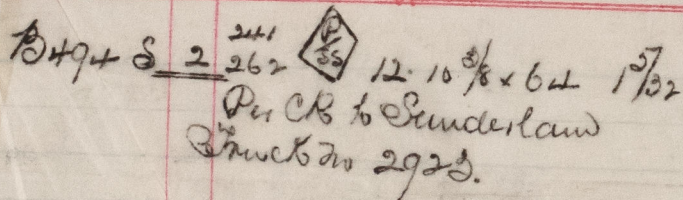 B494 S 2 241 262 P/SS 12. 10 3/8 x 64 1 5/32
Per CR to Sunderland
Truck No 2923.